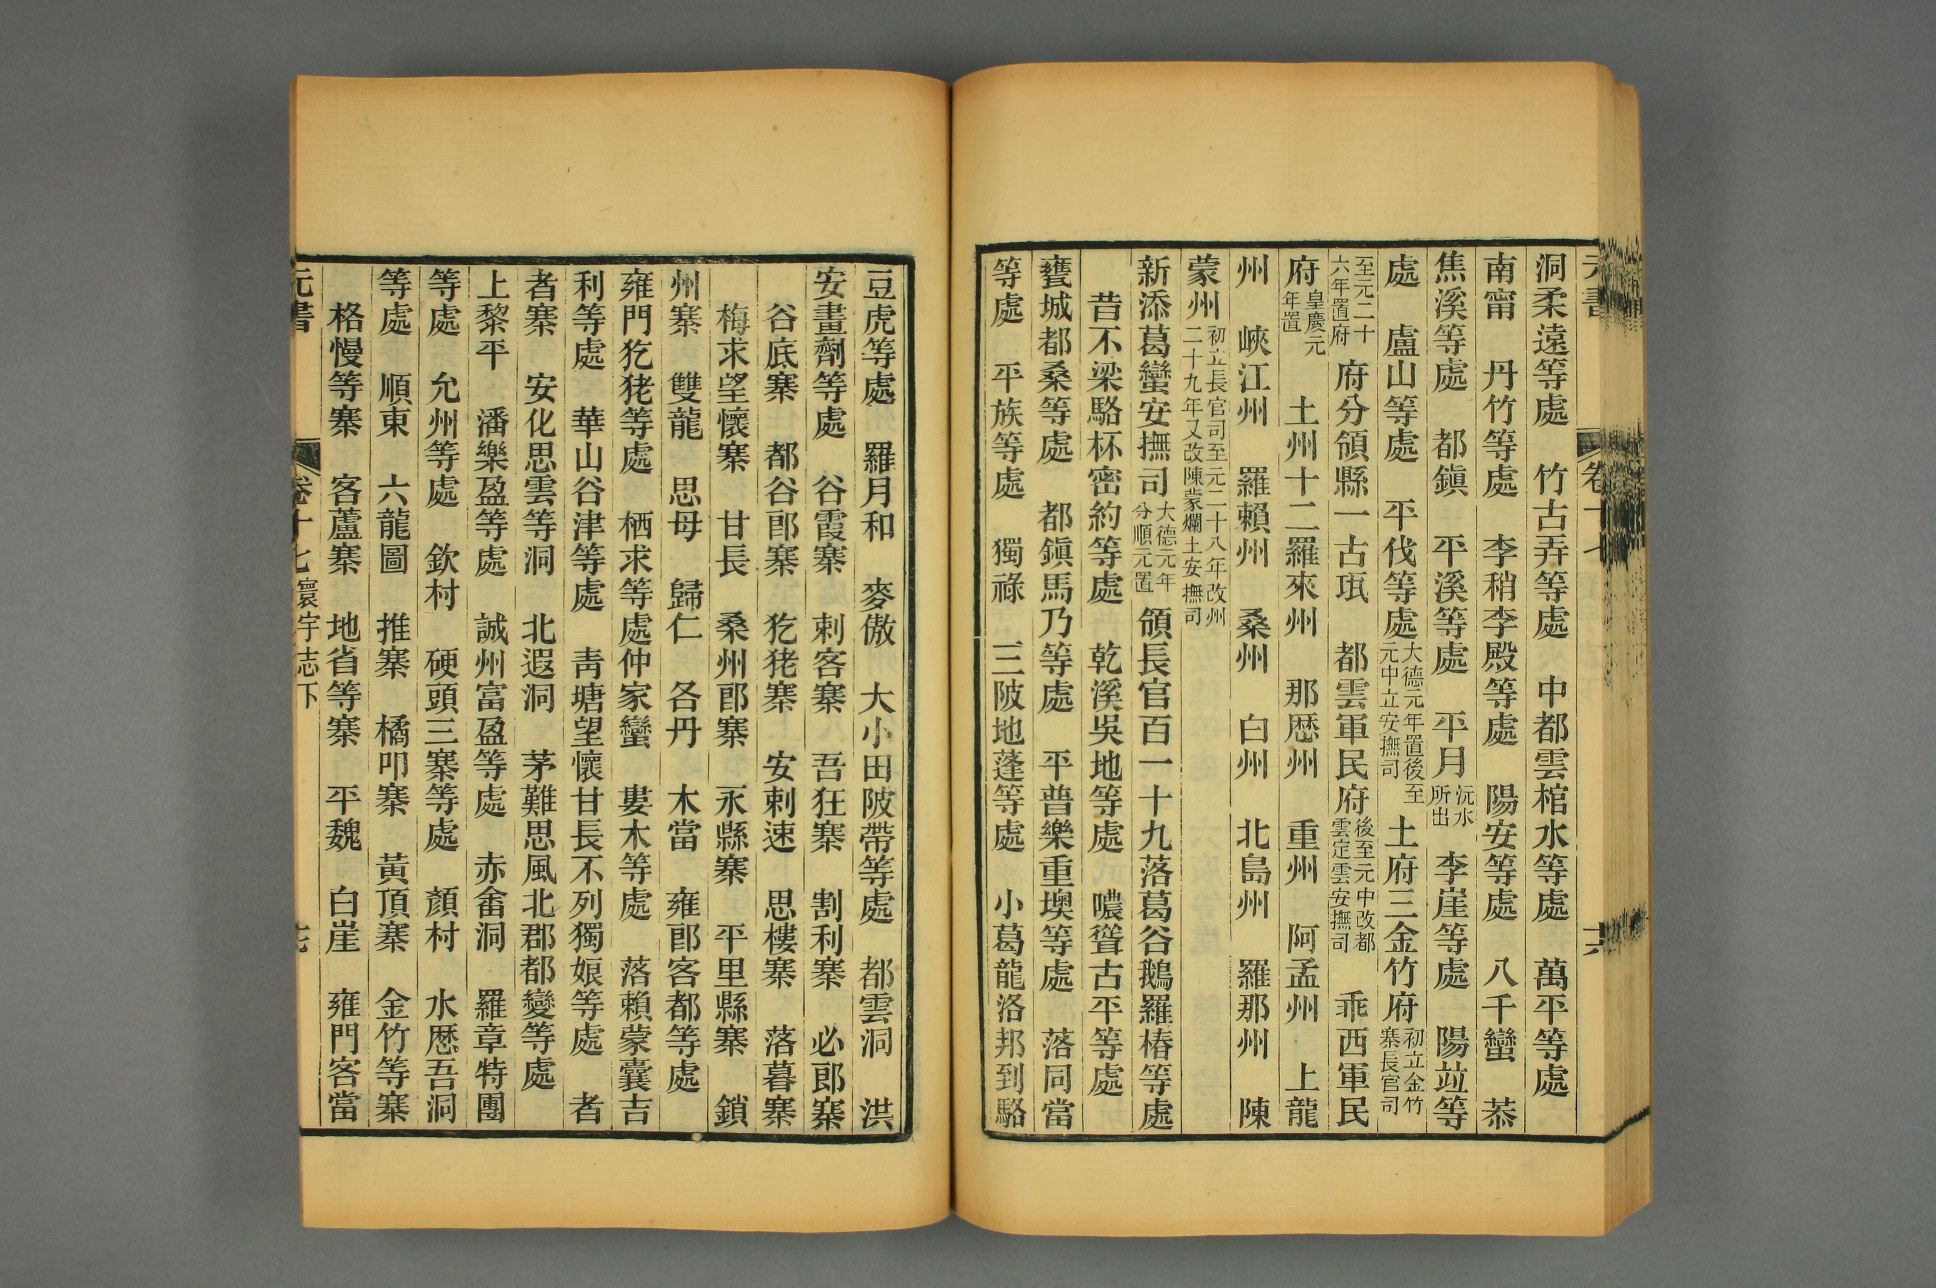 洞柔遠等處　竹古弄等處　中都雲棺水等處　萬平等處
南甯　丹竹等處　李稍李殿等處　陽安等處　八千蠻　恭
焦溪等處　都鎮　平溪等處　平月沅水所出　李崖等處　陽竝等
處　盧山等處　平伐等處大德元年置後至元中立安撫司　土府三金竹府初立金竹寨長官司
至元二十六年置府　府分領縣一古珉　都雲軍民府後至元中改都雲定雲安撫司　乖西軍民
府皇慶元年置　土州十二羅來州　那歷州　重州　阿孟州　上龍
州　峽江州　羅賴州　桑州　白州　北島州　羅那州　陳
蒙州初立長官司至元二十八年改州二十九年又改陳蒙爛土安撫司
新添葛蠻安撫司大德元年分順元置　領長官百一十九落葛谷鵝羅椿等處
昔不梁駱杯密約等處　乾溪吳地等處　噥聳古平等處
甕城都桑等處　都鎮馬乃等處　平普樂重墺等處　落同當
等處　平族等處　獨祿　三陂地蓬等處　小葛龍洛邦到駱
元書　卷十七　十六
豆虎等處　羅月和　麥傲　大小田陂帶等處　都雲洞　洪
安畫劑等處　谷霞寨　刺客寨　吾狂寨　割利寨　必郎寨
谷底寨　都谷郎寨　犵狫寨　安刺速　思樓寨　落暮寨
梅求望懷寨　甘長　桑州郎寨　永縣寨　平里縣寨　鎖
州寨　雙龍　思母　歸仁　各丹　木當　雍郎客都等處
雍門犵狫等處　栖求等處仲家蠻　婁木等處　落賴蒙囊吉
利等處　華山谷津等處　青塘望懷甘長不列獨娘等處　者
者寨　安化思雲等洞　北遐洞　茅難思風北郡都變等處
上黎平　潘樂盈等處　誠州富盈等處　赤畬洞　羅章特團
等處　允州等處　欽村　硬頭三寨等處　顏村　水歷吾洞
等處　順東　六龍圖　推寨　橘叩寨　黃頂寨　金竹等寨
格慢等寨　客蘆寨　地省等寨　平魏　白崖　雍門客當
元書　卷十七寰宇志下　十七